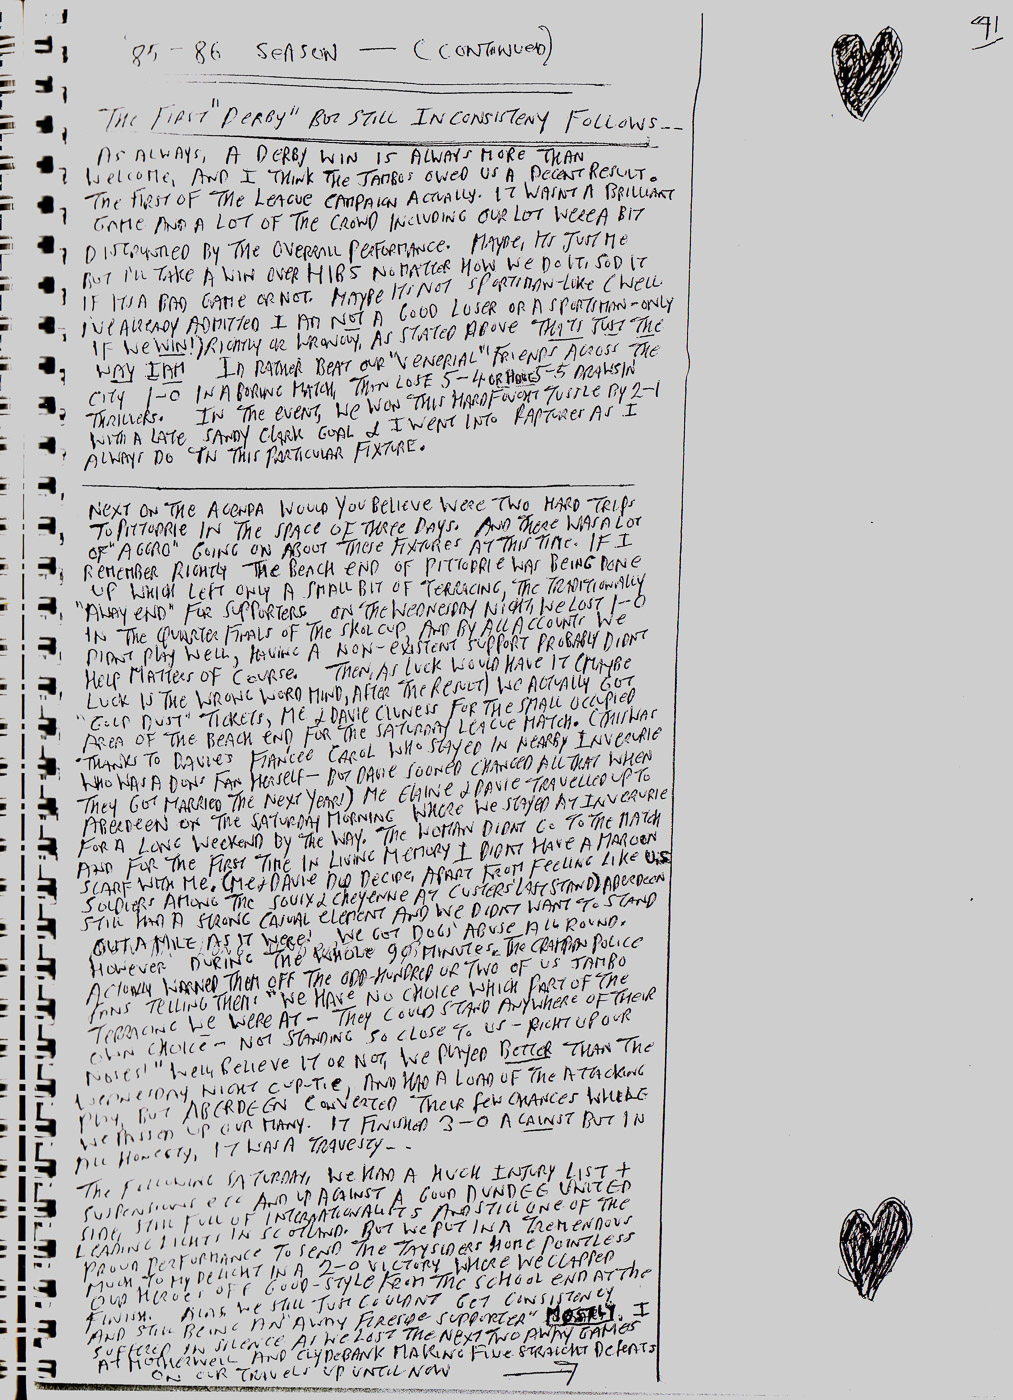 91
'85-86 SEASON — (CONTINUED)
THE FIRST "DERBY" BUT STILL INCONSISTENY FOLLOWS...
AS ALWAYS, A DERBY WIN IS ALWAYS MORE THAN
WELCOME, AND I THINK THE JAMBOS OWED US A DECENT RESULT.
THE FIRST OF THE LEAGUE CAMPAIGN ACTUALLY. IT WASN'T A BRILLIANT
GAME AND A LOT OF THE CROWD INCLUDING OUR LOT WERE A BIT
DISGRUNTLED BY THE OVERALL PERFORMANCE. MAYBE, ITS JUST ME
BUT I'LL TAKE A WIN OVER HIBS NO MATTER HOW WE DO IT, SOD IT
IF ITS A BAD GAME OR NOT. MAYBE ITS NOT SPORTSMAN-LIKE (WELL
I'VE ALREADY ADMITTED I AM NOT A GOOD LOSER OR A SPORTSMAN-ONLY
IF WE WIN!) RIGHTLY OR WRONGLY, AS STATED ABOVE THATS JUST THE
WAY I AM I'D RATHER BEAT OUR "VENERIAL" FRIENDS ACROSS THE
CITY 1-0 IN A BORING MATCH, THAN LOSE 5-4 OR HAVE 5-5 DRAWS IN
THRILLERS. IN THE EVENT, WE WON THIS HARD FOUGHT TUSSLE BY 2-1
WITH A LATE SANDY CLARK GOAL & I WENT INTO RAPTURES AS I
ALWAYS DO IN THIS PARTICULAR FIXTURE.
NEXT ON THE AGENDA WOULD YOU BELIEVE WERE TWO HARD TRIPS
TO PITTODRIE IN THE SPACE OF THREE DAYS. AND THERE WAS A LOT
OF "AGGRO" GOING ON ABOUT THESE FIXTURES AT THIS TIME. IF I
REMEMBER RIGHTLY THE BEACH END OF PITTODRIE WAS BEING DONE
UP WHICH LEFT ONLY A SMALL BIT OF TERRACING, THE TRADITIONALLY
"AWAY END" FOR SUPPORTERS ON THE WEDNESDAY NIGHT, WE LOST 1-0
IN THE QUARTER FINALS OF THE SKOL CUP, AND BY ALL ACCOUNTS WE
DIDNT PLAY WELL, HAVING A NON-EXISTENT SUPPORT PROBABLY DIDNT
HELP MATTERS OF COURSE. THEN, AS LUCK WOULD HAVE IT (MAYBE
LUCK IS THE WRONG WORD MIND, AFTER THE RESULT) WE ACTUALLY GOT
"GOLD DUST" TICKETS, ME & DAVIE CLUNESS FOR THE SMALL OCCUPIED
AREA OF THE BEACH END, FOR THE SATURDAY LEAGUE MATCH. (THIS WAS
THANKS TO DAVIES FIANCEE CAROL WHO STAYED IN NEARBY INVERURIE
WHO WAS A DONS FAN HERSELF - BUT DAVIE SOONED CHANGED ALL THAT WHEN
THEY GOT MARRIED THE NEXT YEARS) ME ELAINE & DAVIE TRAVELLED UP TO
ABERDEEN ON THE SATURDAY MORNING WHERE WE STAYED AT INVERURIE
FOR A LONG WEEKEND BY THE WAY. THE WOMAN DIDNT GO TO THE MATCH
AND FOR THE FIRST TIME IN LIVING MEMORY I DIDNT HAVE A MAROON
SCARF WITH ME. (ME & DAVIE DID DECIDE, APART FROM FEELING LIKE U.S
SOLDIERS AMONG THE SOUIX & CHEYENNE AT CUSTERS LAST STAND) ABERDEEN
STILL HAD A STRONG CASUAL ELEMENT AND WE DIDNT WANT TO STAND
OUT A MILE AS IT WERE! WE GOT DOGS' ABUSE ALL ROUND.
HOWEVER DURING THE WHOLE 90 MINUTES. THE GRAMPIAN POLICE
ACTUALLY WARNED THEM OFF THE ODD-HUNDRED OR TWO OF US JAMBO
FANS TELLING THEM: "WE HAVE NO CHOICE WHICH PART OF THE
TERRACING WE WERE AT - THEY COULD STAND ANYWHERE OF THEIR
OWN CHOICE - NOT STANDING SO CLOSE TO US - RIGHT UP OUR
NOSES!" WELL BELIEVE IT OR NOT, WE PLAYED BETTER THAN THE
WEDNESDAY NIGHT CUP-TIE, AND HAD A LOAD OF THE ATTACKING
PLAY, BUT ABERDEEN CONVERTED THEIR FEW CHANCES WHERE
WE PASSED UP OUR MANY. IT FINISHED 3-0 AGAINST BUT IN
ALL HONESTY, IT WAS A TRAVESTY...
THE FOLLOWING SATURDAY, WE HAD A HUGH INJURY LIST +
SUSPENSIONS ECC AND UP AGAINST A GOOD DUNDEE UNITED
SIDE, STILL FULL OF INTERNATIONALITS AND STILL ONE OF THE
LEADING LIGHTS IN SCOTLAND. BUT WE PUT IN A TREMENDOUS
PROUD PERFORMANCE TO SEND THE TAYSIDERS HOME POINTLESS
MUCH TO MY DELIGHT IN A 2-0 VICTORY WHERE WE CLAPPED
OUR HEROES OFF GOOD-STYLE FROM THE SCHOOL END AT THE
FINISH. ALAS WE STILL JUST COULDNT GET CONSISTENCY
AND STILL BEING AN "AWAY FIRESIDE SUPPORTER" MOSTLY. I
SUFFERED IN SILENCE AS WE LOST THE NEXT TWO AWAY GAMES
AT MOTHERWELL AND CLYDEBANK MAKING FIVE STRAIGHT DEFEATS
ON OUR TRAVELS UP UNTIL NOW